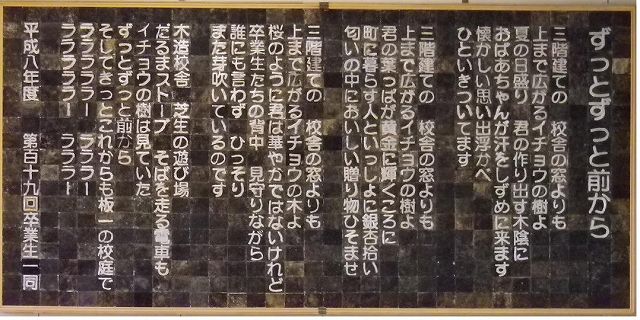 ずっとずっと前から
三階建ての 校舎の窓よりも
上まで広がるイチョウの樹よ
夏の日盛り 君の作り出す木陰に
おばあちゃんが汗をしずめに来ます
懐かしい思い出浮かべ
ひといきついてます
三階建ての 校舎の窓よりも
上まで広がるイチョウの樹よ
君の葉っぱが黄金に輝くころに
町に暮らす人といっしょに銀杏拾い
匂いの中においしい贈り物ひそませ
三階建ての 校舎の窓よりも
上まで広がるイチョウの木よ
桜のように君は華やかではないけれど
卒業生たちの背中 見守りながら
誰にも言わず ひっそり
また芽吹いているのです
木造校舎 芝生の遊び場
だるまストーブ そばを走る電車も
イチョウの樹は見ていた
ずっとずっと前から
そしてきっとこれからも板一の校庭で
ララララララー ラララー
ララララララー ラララー
平成八年度 第百十九回卒業生一同